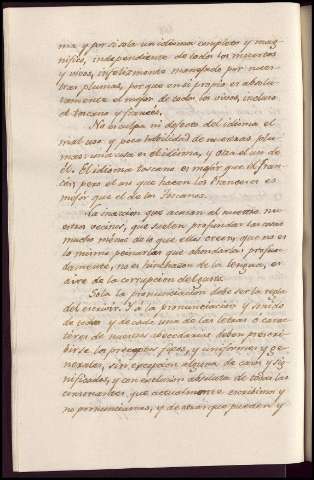 mia y por si sola un idioma completo y mag-
nifico, independiente de todos los muertos
y vivos, infelizmente manejado por nues-
tras plumas, porque en si propio es absolu-
tamente el mejor de todos los vivos, incluso
el toscano y francés.
No es culpa ni defecto del idioma el
mal uso y poca habilidad de nuestras plu-
mas: una cosa es el idioma, y otra el uso de
él. El idioma toscano es mejor que el fran-
cés; pero el uso que hacen los franceses es
mejor que el de los toscanos.
La que acusan al nuestro nu-
estros vecinos, que suelen profundar las cosas
mucho ménos de lo que ellos creen, que no es
lo mismo pensarlas que ahondarlas profun-
damente, no es hinchazon de la lengua, es
aire de la corrupcion del gusto.
Sola la pronunciacion debe ser la regla
del escribir. A la pronunciacion y sonido
de todas y de cada una de las letras ó carac-
téres de nuestro abecedario deben prescri-
birse los preceptos fijos, y uniformes y ge-
nerales, sin excepcion alguna de casos y sig-
nificados, y con exclusion absoluta de todas las
consonantes que actualmente escribimos y
no pronunciamos, y de otras que pueden y